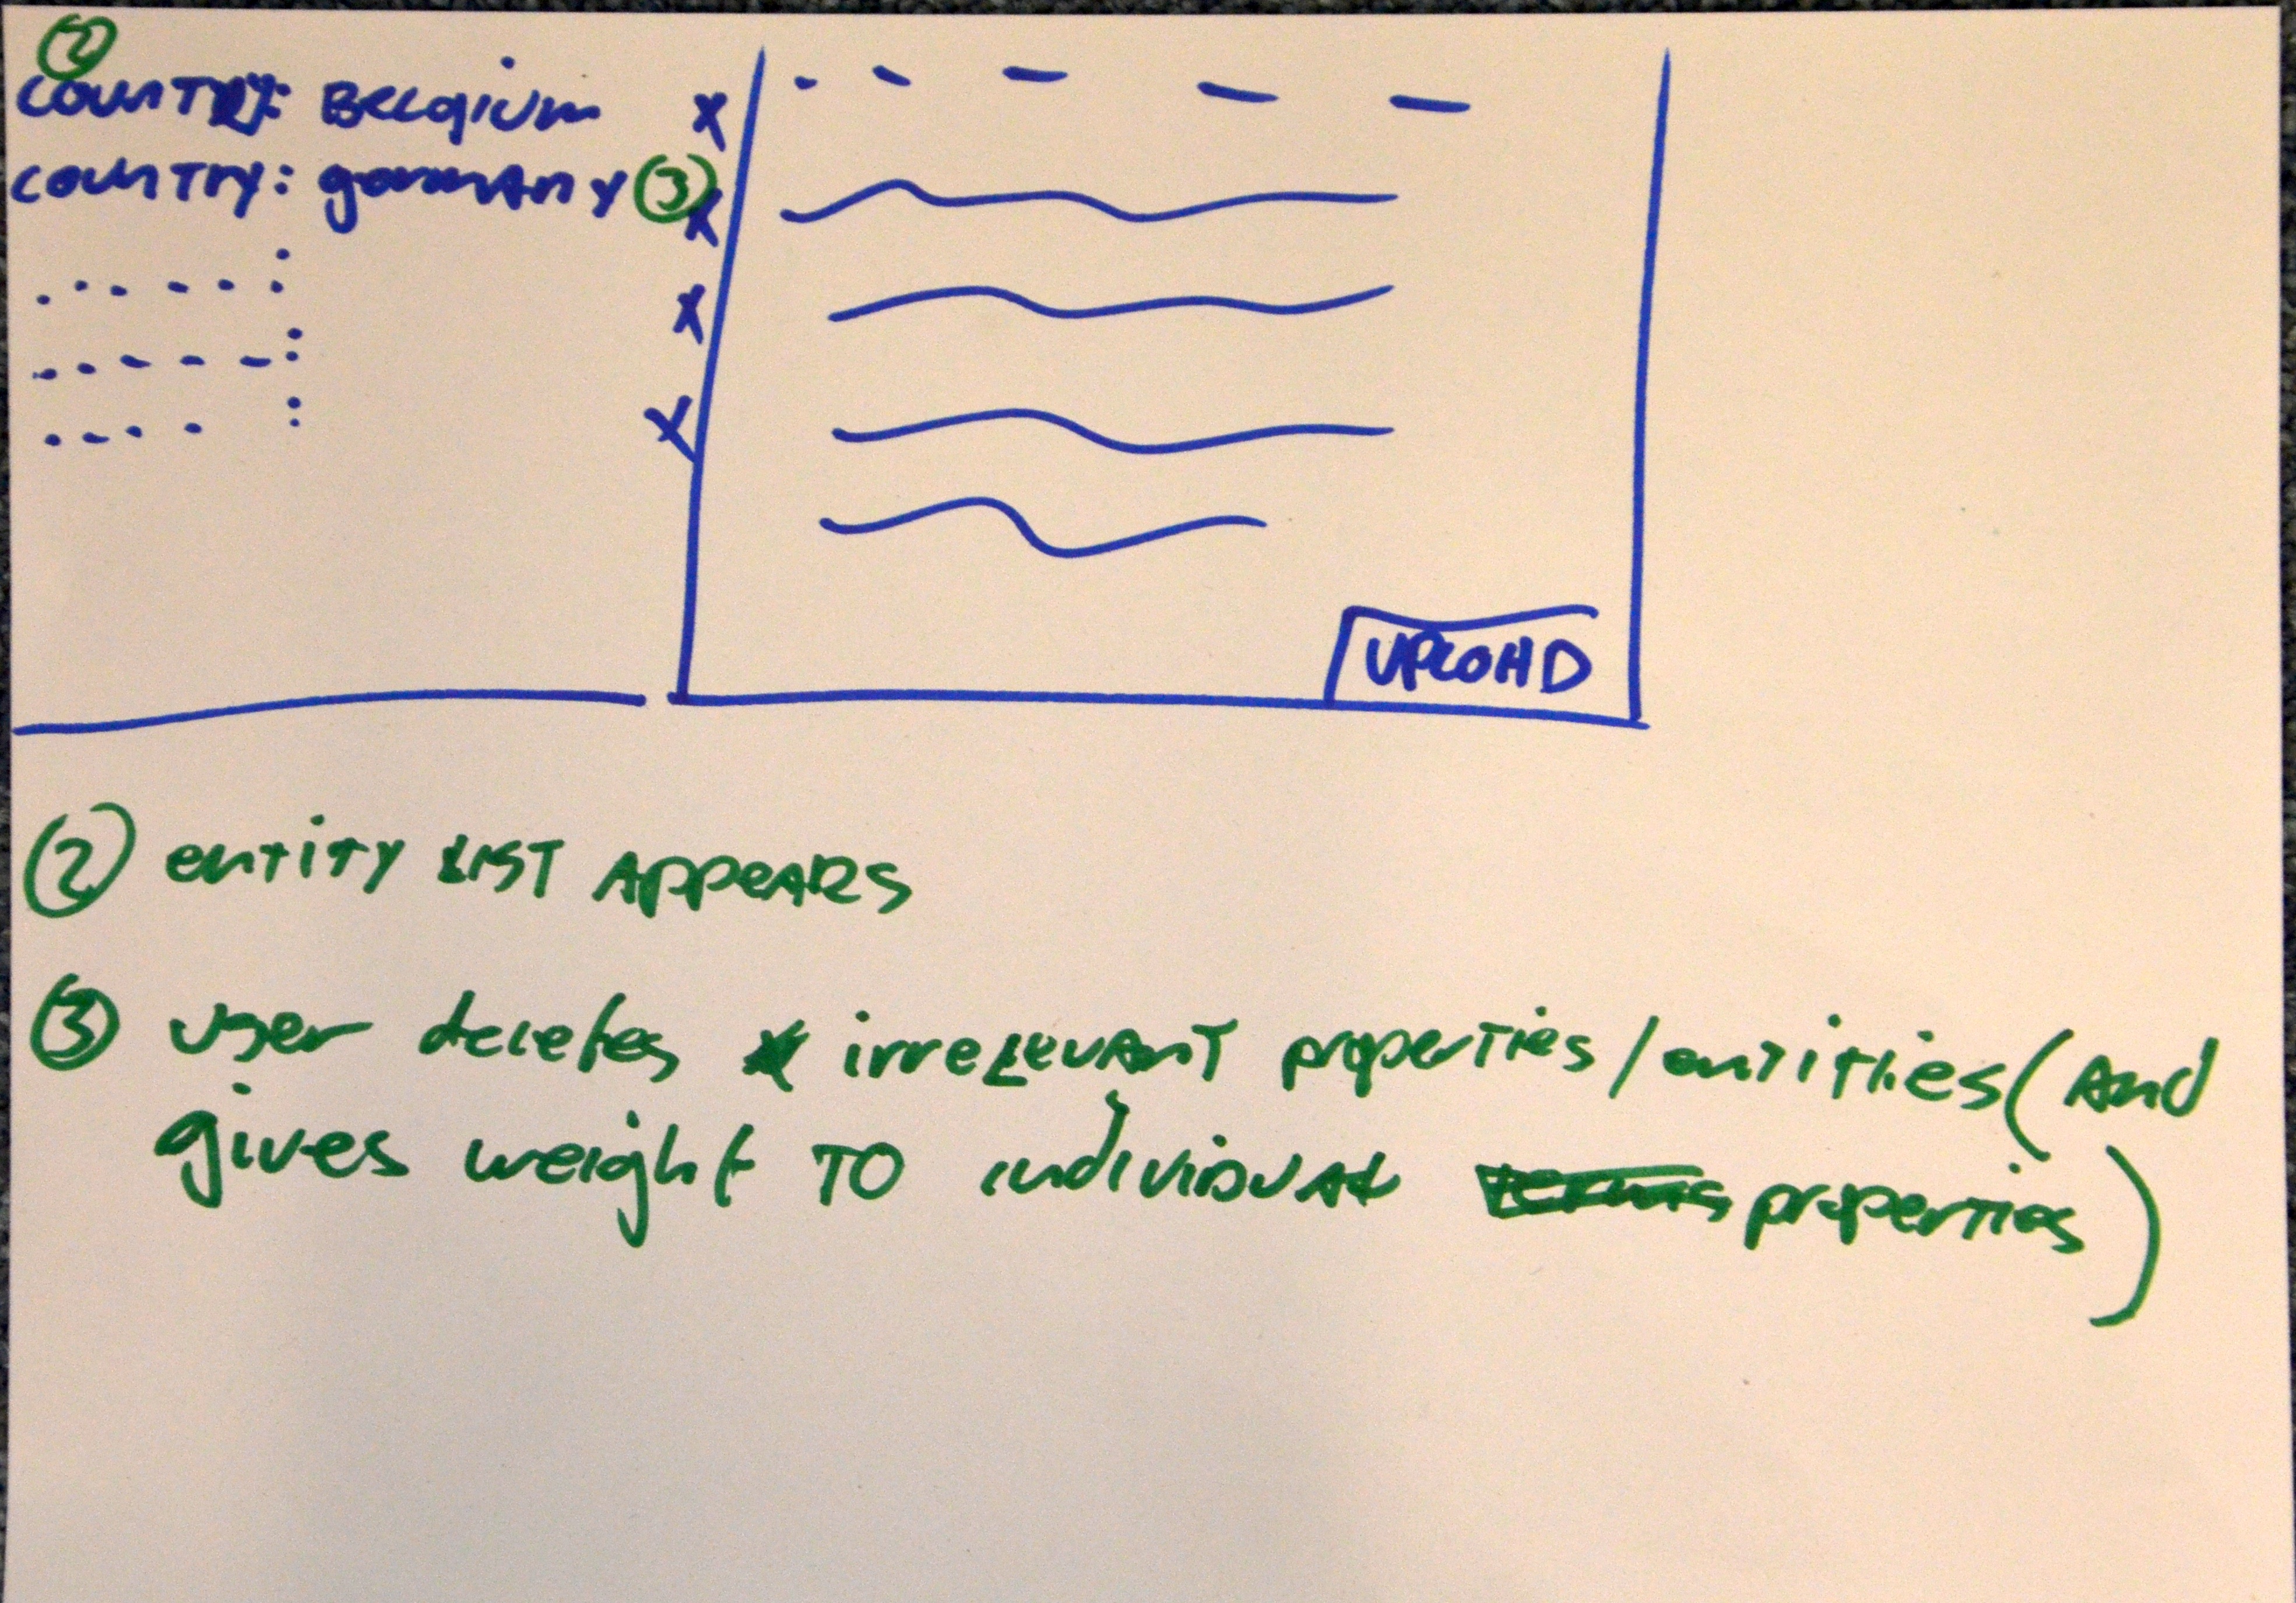 2
COUNTRY: Belgium X
COUNTRY: germany 3 X
X
X
UPLOAD
2 entity LIST APPEARS
3 user deletes irrelevant properties/entities (And
gives weight TO individual properties)